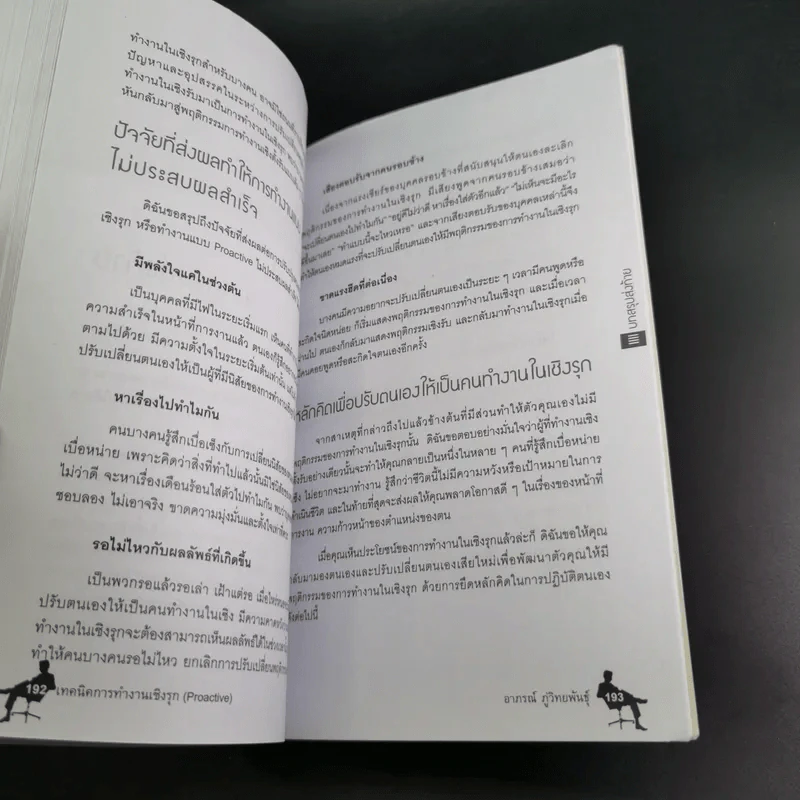 ทำงานในเชิงรุกสำหรับบางคน
ปัญหาและอุปสรรคในระหว่างการปรับเปลี่ยน
ทำงานในเชิงรับมาเป็นการทำงานในเชิงรุก
หันกลับมาสู่พฤติกรรมการทำงานเชิงตั้งรับ
ปัจจัยที่ส่งผลทำให้การทำงาน
ไม่ประสบผลสำเร็จ
ดิฉันขอสรุปถึงปัจจัยที่ส่งผลต่อการปรับเปลี่ยน
เชิงรุก หรือทำงานแบบ Proactive ไม่ประสบผลสำเร็จ
มีพลังใจแค่ในช่วงต้น
เป็นบุคคลที่มีไฟในระยะเริ่มแรก
ความสำเร็จในหน้าที่การงานแล้ว ตนเองก็รู้สึก
ตามไปด้วย มีความตั้งใจในระยะเริ่มต้นเท่านั้น
ปรับเปลี่ยนตนเองให้เป็นผู้ที่มีนิสัยของการทำงาน
หาเรื่องไปทำไมกัน
คนบางคนรู้สึกเบื่อเซ็งกับการเปลี่ยนนิสัย
เบื่อหน่าย เพราะคิดว่าสิ่งที่ทำไปแล้วนั้นมิใช่
ไม่ว่าดี จะหาเรื่องเดือนร้อนใส่ตัวไปทำไมกัน
ชอบลอง ไม่เอาจริง ขาดความมุ่งมั่นและตั้งใจ
รอไม่ไหวกับผลลัพธ์ที่เกิดขึ้น
เป็นพวกรอแล้วรอเล่า เฝ้าแต่รอ เมื่อไหร่
ปรับตนเองให้เป็นคนทำงานในเชิง มีความคาดหวัง
ทำงานในเชิงรุกจะต้องสามารถเห็นผลลัพธ์ได้ในช่วง
ทำให้คนบางคนรอไม่ไหว ยกเลิกการปรับเปลี่ยน
192 เทคนิคการทำงานเชิงรุก (Proactive)
เสียงตอบรับจากคนรอบข้าง
เนื่องจากแรงเชียร์ของบุคคลรอบข้างที่สนับสนุนให้ตนเองละเลิก
พฤติกรรมของการทำงานในเชิงรุก มีเสียงพูดจากคนรอบข้างเสมอว่า
จะเปลี่ยนตนเองไปทำไมกัน" "อยู่ดีไม่ว่าดี หาเรื่องใส่ตัวอีกแล้ว" "ไม่เห็นจะมีอะไร
ดีขึ้นมาเลย" "ทำแบบนี้จะไหวเหรอ" และจากเสียงตอบรับของบุคคลเหล่านี้จึง
ทำให้ตนเองหมดแรงที่จะปรับเปลี่ยนตนเองให้มีพฤติกรรมของการทำงานในเชิงรุก
ขาดแรงฮึดที่ต่อเนื่อง
บางคนมีความอยากจะปรับเปลี่ยนตนเองเป็นระยะ ๆ เวลามีคนพูดหรือ
สะกิดใจนิดหน่อย ก็เริ่มแสดงพฤติกรรมของการทำงานในเชิงรุก และเมื่อเวลา
ผ่านไป ตนเองก็กลับมาแสดงพฤติกรรมเชิงรับ และกลับมาทำงานในเชิงรุกเมื่อ
มีคนคอยพูดหรือสะกิดใจตนเองอีกครั้ง
หลักคิดเพื่อปรับตนเองให้เป็นคนทำงานในเชิงรุก
จากสาเหตุที่กล่าวถึงไปแล้วข้างต้นที่มีส่วนทำให้ตัวคุณเองไม่มี
พฤติกรรมของการทำงานในเชิงรุกนั้น ดิฉันขอตอบอย่างมั่นใจว่าผู้ที่ทำงานเชิง
ตั้งรับอย่างเดียวนั้นจะทำให้คุณกลายเป็นหนึ่งในหลาย ๆ คนที่รู้สึกเบื่อหน่าย
เซ็ง ไม่อยากจะมาทำงาน รู้สึกว่าชีวิตนี้ไม่มีความหวังหรือเป้าหมายในการ
ดำเนินชีวิต และในท้ายที่สุดจะส่งผลให้คุณพลาดโอกาสดี ๆ ในเรื่องของหน้าที่
การงาน ความก้าวหน้าของตำแหน่งของตน
เมื่อคุณเห็นประโยชน์ของการทำงานในเชิงรุกแล้วล่ะก็ ดิฉันขอให้คุณ
กลับมามองตนเองและปรับเปลี่ยนตนเองเสียใหม่เพื่อพัฒนาตัวคุณให้มี
พฤติกรรมของการทำงานในเชิงรุก ด้วยการยึดหลักคิดในการปฏิบัติตนเอง
ดังต่อไปนี้
บทสรุปส่งท้าย
อาภรณ์ ภู่วิทยพันธุ์ 193